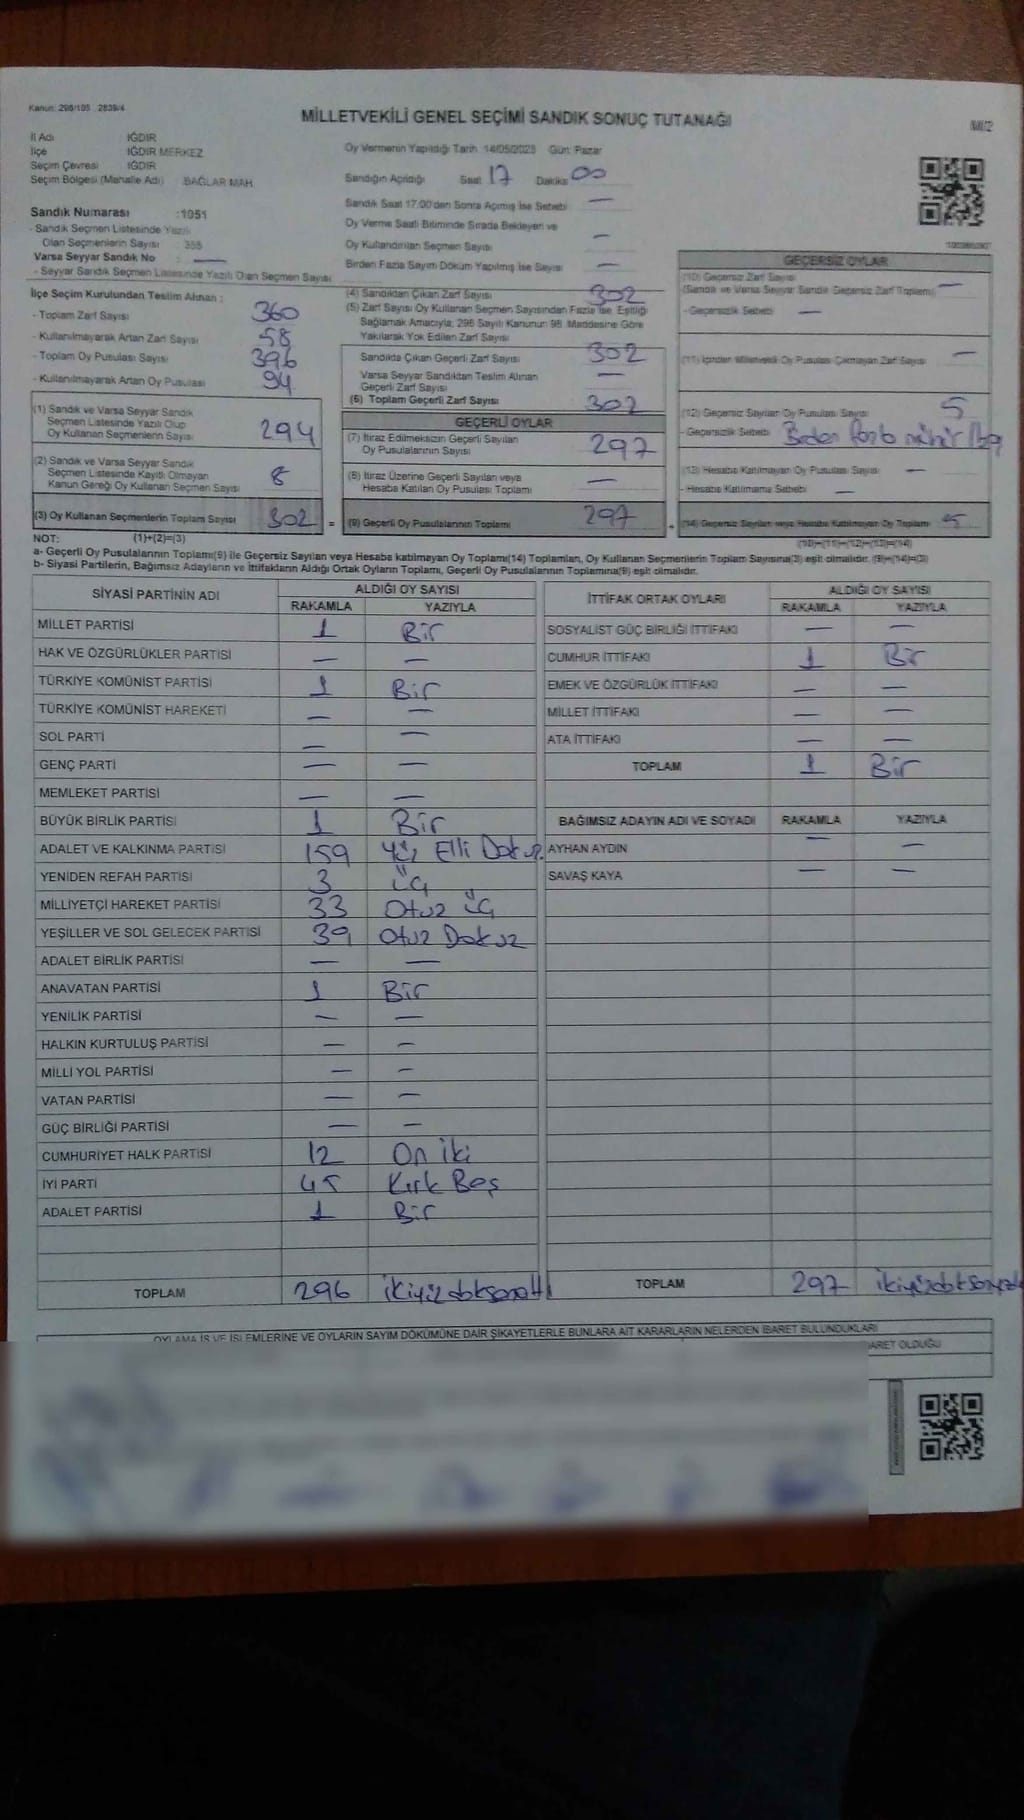 Kanun: 298/105 2839/4
MİLLETVEKİLİ GENEL SEÇİMİ SANDIK SONUÇ TUTANAĞI
İl Adı : IĞDIR
İlçe : IĞDIR MERKEZ
Seçim Çevresi : IĞDIR
Seçim Bölgesi (Mahalle Adı) : BAĞLAR MAH.
Oy Vermenin Yapıldığı Tarih: 14/05/2023 Gün: Pazar
Sandığın Açıldığı Saat 17 Dakika 00
Sandık Saat 17.00'den Sonra Açılmış İse Sebebi —
Oy Verme Saati Bitiminde Sırada Bekleyen ve
Oy Kullandırılan Seçmen Sayısı —
Birden Fazla Sayım Döküm Yapılmış İse Sayısı —
Sandık Numarası : 1051
- Sandık Seçmen Listesinde Yazılı
Olan Seçmenlerin Sayısı : 355
Varsa Seyyar Sandık No : —
- Seyyar Sandık Seçmen Listesinde Yazılı Olan Seçmen Sayısı
İlçe Seçim Kurulundan Teslim Alınan :
- Toplam Zarf Sayısı 360
- Kullanılmayarak Artan Zarf Sayısı 58
- Toplam Oy Pusulası Sayısı 396
- Kullanılmayarak Artan Oy Pusulası 94
(1) Sandık ve Varsa Seyyar Sandık
Seçmen Listesinde Yazılı Olup
Oy Kullanan Seçmenlerin Sayısı 294
(2) Sandık ve Varsa Seyyar Sandık
Seçmen Listesinde Kayıtlı Olmayan
Kanun Gereği Oy Kullanan Seçmen Sayısı 8
(3) Oy Kullanan Seçmenlerin Toplam Sayısı 302 =
(1)+(2)=(3)
(4) Sandıktan Çıkan Zarf Sayısı 302
(5) Zarf Sayısı Oy Kullanan Seçmen Sayısından Fazla İse, Eşitliği
Sağlamak Amacıyla, 298 Sayılı Kanunun 98. Maddesine Göre
Yakılarak Yok Edilen Zarf Sayısı
Sandıkta Çıkan Geçerli Zarf Sayısı 302
Varsa Seyyar Sandıktan Teslim Alınan
Geçerli Zarf Sayısı —
(6) Toplam Geçerli Zarf Sayısı 302
GEÇERLİ OYLAR
(7) İtiraz Edilmeksizin Geçerli Sayılan
Oy Pusulalarının Sayısı 297
(8) İtiraz Üzerine Geçerli Sayılan veya
Hesaba Katılan Oy Pusulası Toplamı —
(9) Geçerli Oy Pusulalarının Toplamı 297 +
GEÇERSİZ OYLAR
(10) Geçersiz Zarf Sayısı
(Sandık ve Varsa Seyyar Sandık Geçersiz Zarf Toplamı) —
- Geçersizlik Sebebi —
(11) İçinden Milletvekili Oy Pusulası Çıkmayan Zarf Sayısı —
(12) Geçersiz Sayılan Oy Pusulası Sayısı 5
- Geçersizlik Sebebi Birden fazla mühür
(13) Hesaba Katılmayan Oy Pusulası Sayısı —
- Hesaba Katılmama Sebebi —
(14) Geçersiz Sayılan veya Hesaba Katılmayan Oy Toplamı 5
(10)+(11)+(12)+(13)=(14)
NOT:
a- Geçerli Oy Pusulalarının Toplamı(9) ile Geçersiz Sayılan veya Hesaba katılmayan Oy Toplamı(14) Toplamları, Oy Kullanan Seçmenlerin Toplam Sayısına(3) eşit olmalıdır. (9)+(14)=(3)
b- Siyasi Partilerin, Bağımsız Adayların ve İttifakların Aldığı Ortak Oyların Toplamı, Geçerli Oy Pusulalarının Toplamına(9) eşit olmalıdır.
SİYASİ PARTİNİN ADI ALDIĞI OY SAYISI
RAKAMLA YAZIYLA
MİLLET PARTİSİ 1 Bir
HAK VE ÖZGÜRLÜKLER PARTİSİ — —
TÜRKİYE KOMÜNİST PARTİSİ 1 Bir
TÜRKİYE KOMÜNİST HAREKETİ — —
SOL PARTİ — —
GENÇ PARTİ — —
MEMLEKET PARTİSİ — —
BÜYÜK BİRLİK PARTİSİ 1 Bir
ADALET VE KALKINMA PARTİSİ 159 Yüz Elli Dokuz
YENİDEN REFAH PARTİSİ 3 Üç
MİLLİYETÇİ HAREKET PARTİSİ 33 Otuz Üç
YEŞİLLER VE SOL GELECEK PARTİSİ 39 Otuz Dokuz
ADALET BİRLİK PARTİSİ — —
ANAVATAN PARTİSİ 1 Bir
YENİLİK PARTİSİ — —
HALKIN KURTULUŞ PARTİSİ — —
MİLLİ YOL PARTİSİ — —
VATAN PARTİSİ — —
GÜÇ BİRLİĞİ PARTİSİ — —
CUMHURİYET HALK PARTİSİ 12 On iki
İYİ PARTİ 45 Kırk Beş
ADALET PARTİSİ 1 Bir
TOPLAM 296 ikiyüzdoksanaltı
İTTİFAK ORTAK OYLARI ALDIĞI OY SAYISI
RAKAMLA YAZIYLA
SOSYALİST GÜÇ BİRLİĞİ İTTİFAKI — —
CUMHUR İTTİFAKI 1 Bir
EMEK VE ÖZGÜRLÜK İTTİFAKI — —
MİLLET İTTİFAKI — —
ATA İTTİFAKI — —
TOPLAM 1 Bir
BAĞIMSIZ ADAYIN ADI VE SOYADI RAKAMLA YAZIYLA
AYHAN AYDIN — —
SAVAŞ KAYA — —
TOPLAM 297
OYLAMA İŞ VE İŞLEMLERİNE VE OYLARIN SAYIM DÖKÜMÜNE DAİR ŞİKAYETLERLE BUNLARA AİT KARARLARIN NELERDEN İBARET BULUNDUKLARI
İBARET OLDUĞU